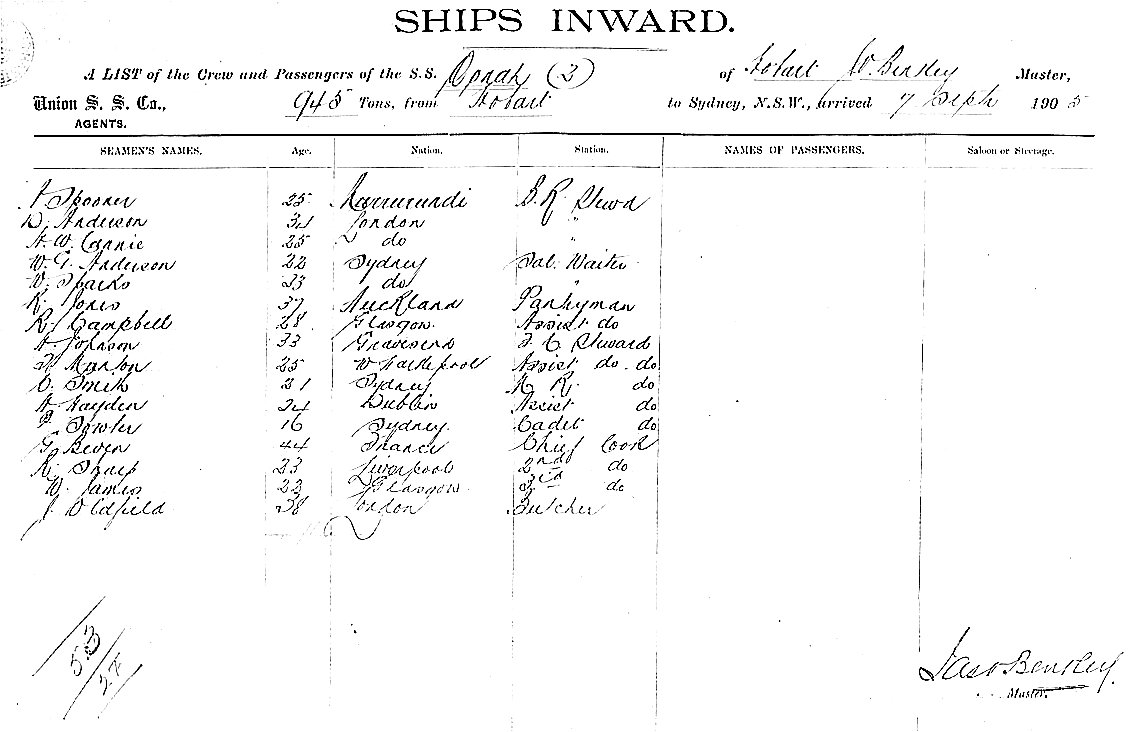 SHIPS INWARD.
A LIST of the Crew and Passengers of the S.S. Oonah (3) of Hobart W. Bentley Master,
Union S. S. Co., 945 Tons, from Hobart to Sydney, N.S.W., arrived 7 Septr 1905
AGENTS.
SEAMEN'S NAMES. Age. Nation. Station. NAMES OF PASSENGERS. Saloon or Steerage.
Spooner 25 Murrurundi B. R. Stewd
D. Anderson 31 London "
H. W. Cannie 25 do "
W. G. Anderson 22 Sydney Sal. Waiter
W. Sparks 23 do "
R. Jones 37 Auckland Pantryman
R. Campbell 28 Glasgow. Assist do
A. Johnson 33 Gravesend F. C. Steward
Manton 25 W Hartlepool Assist do. do
Smith 21 Sydney R. do
H Hayden 24 Dublin Assist do
Fowler 16 Sydney. Cadet do
G. Beven 44 France Chief Cook
R. Sharp 23 Liverpool 2nd do
W. James 22 Glasgow 3rd do
J. Oldfield 38 London Butcher
53
27
Jas Bentley
Master.